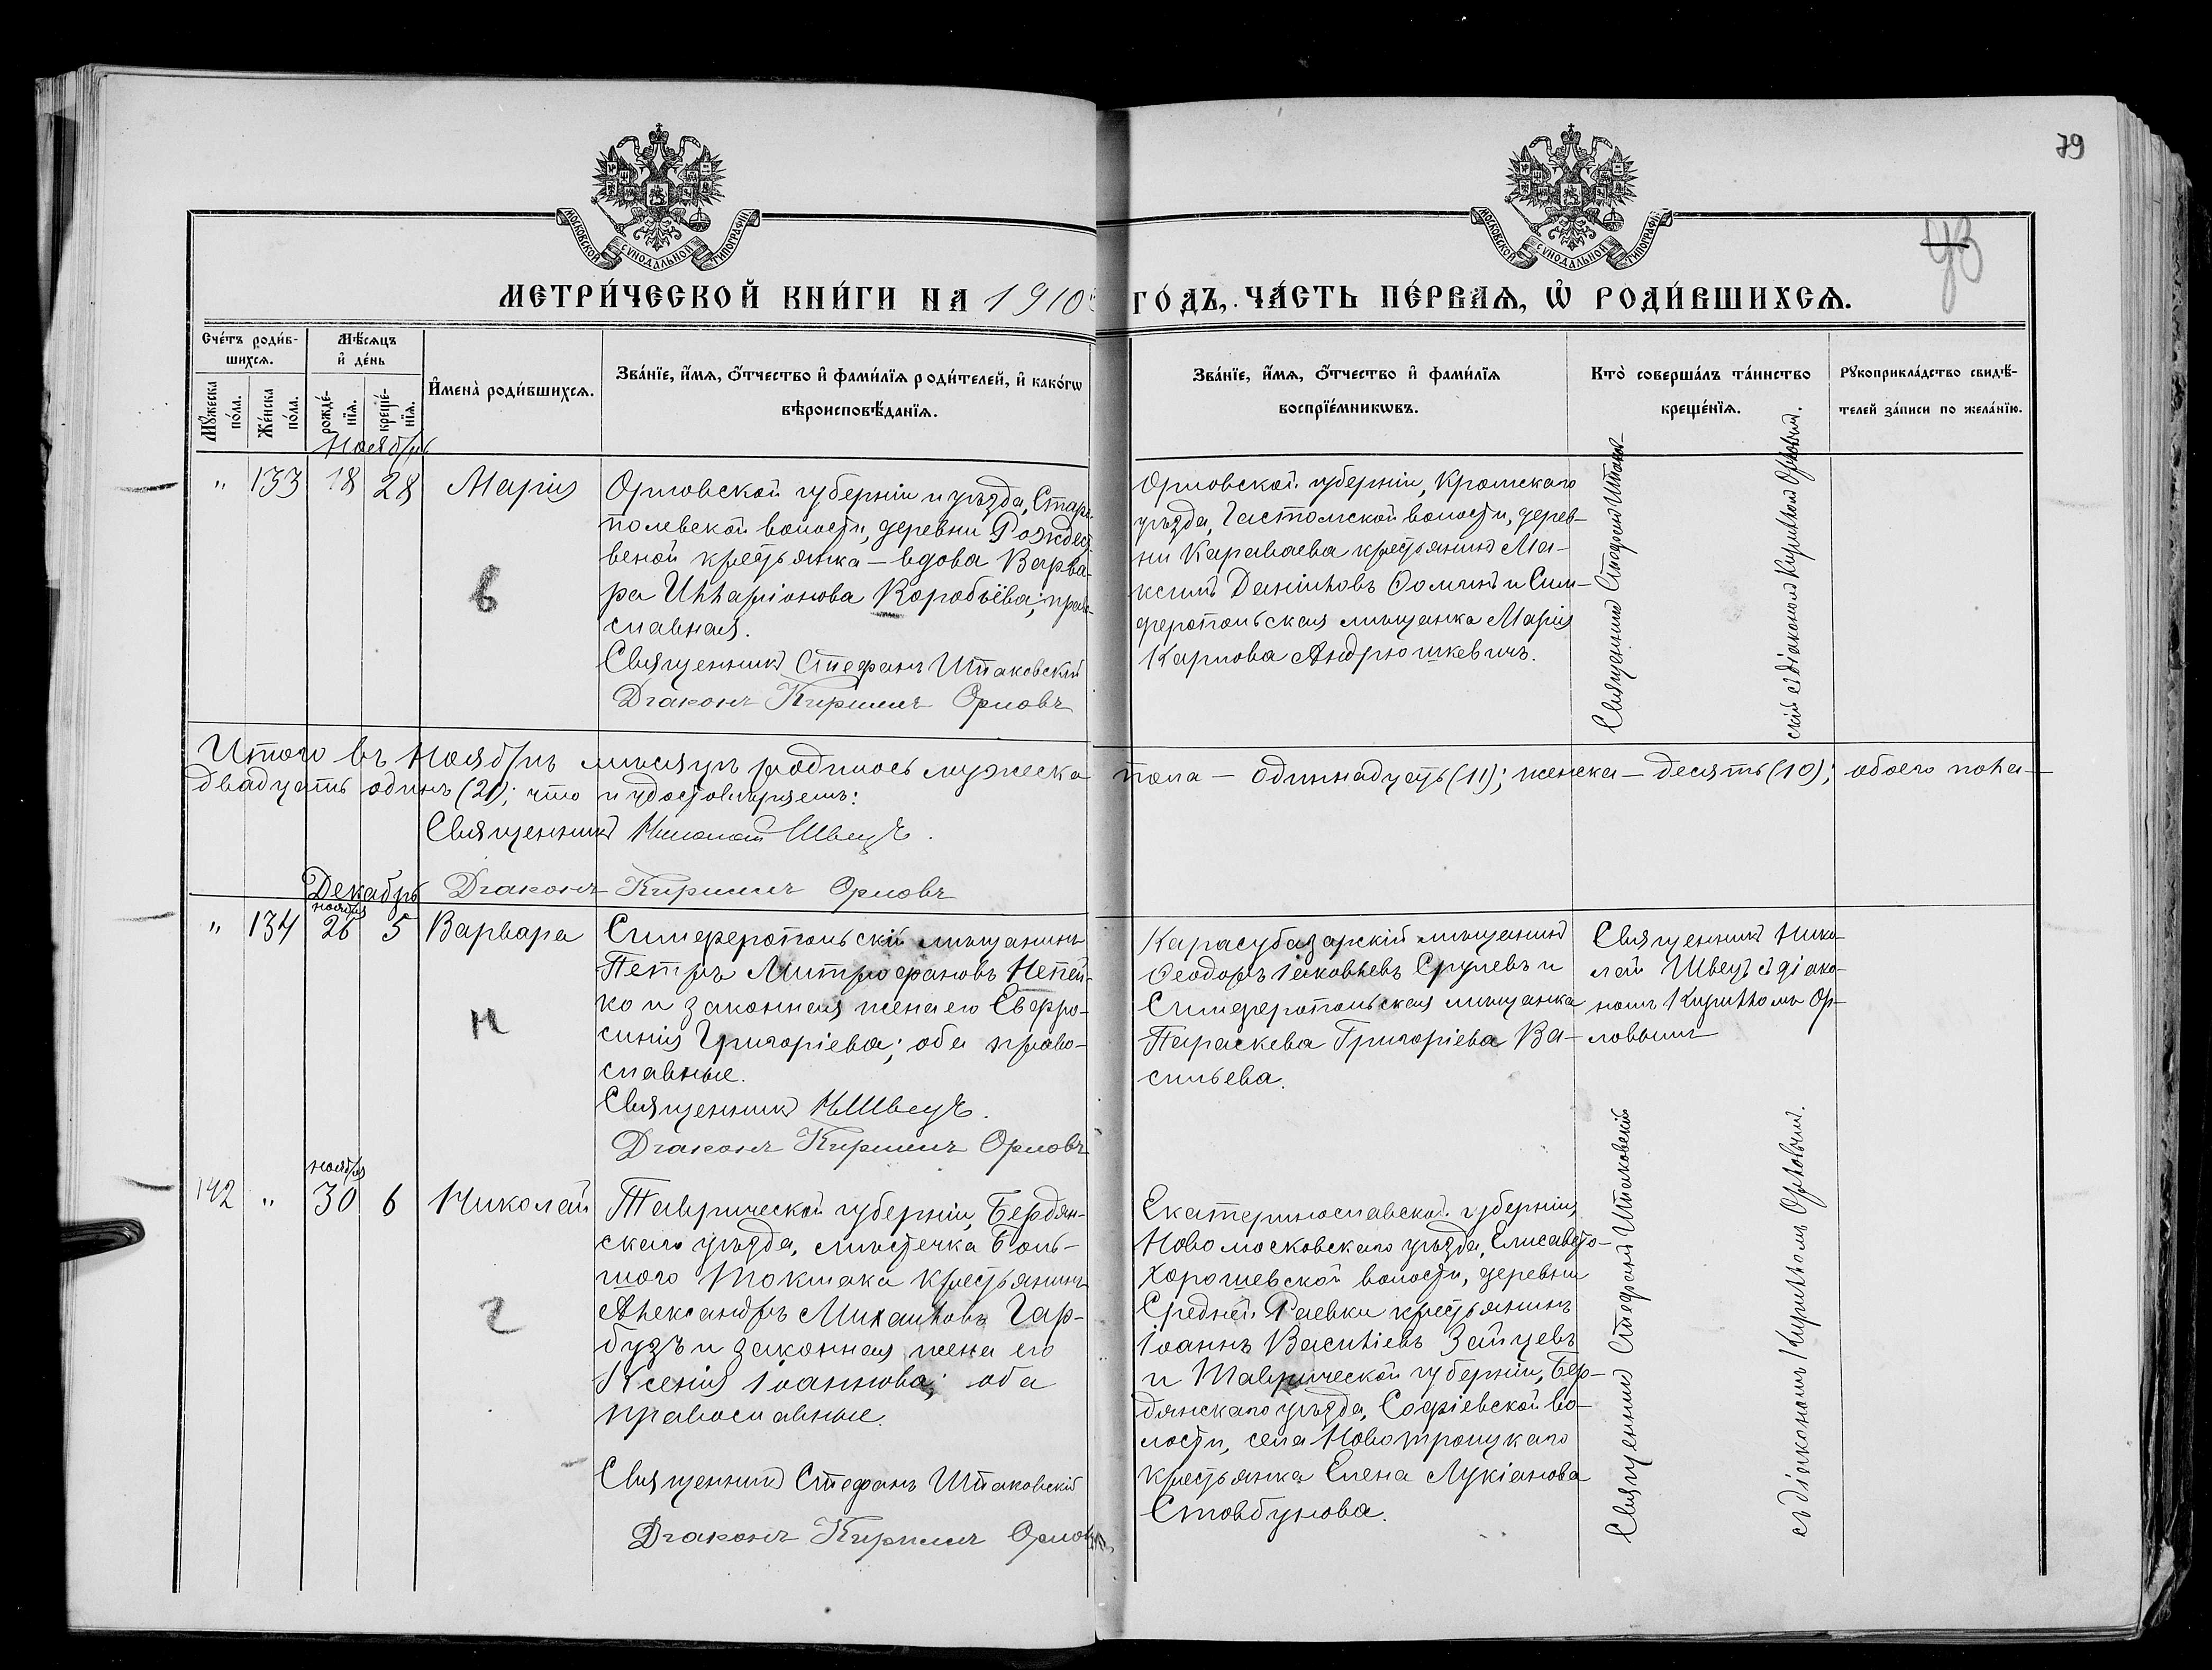 79
93
МОСКОВСКОЙ СѴНОДАЛЬНОЙ ТИПОГРАФІИ
МОСКОВСКОЙ СѴНОДАЛЬНОЙ ТИПОГРАФІИ
МЕТРИ́ЧЕСКОЙ КНИ́ГИ НА 1910 ГО́ДЪ, ЧА́СТЬ ПЕ́РВАѦ, Ѿ РОДИ́ВШИХСѦ.
Сче́тъ роди́в-
шихсѧ.
Мѣ́сѧцъ
и҆ де́нь
Мꙋ́жеска
по́ла.
Же́нска
по́ла.
рожде́-
нїѧ.
креще́-
нїѧ.
И҆мена̀ роди́вшихсѧ.
Зва́нїе, и҆́мѧ, ѻ҆́тчество и҆ фами́лїѧ роди́телей, и҆ како́гѡ
вѣроисповѣ́данїѧ.
Зва́нїе, и҆́мѧ, ѻ҆́тчество и҆ фами́лїѧ
воспрїе́мникѡвъ.
Кто̀ соверша́лъ та́инство
креще́нїѧ.
Рꙋкоприкла́дство свидѣ́-
телей за́писи по жела́нїю.
Ноябрь
" 133 18 28 Марія
в
Орловской губерніи и уѣзда, Старо-
полевской волости, деревни Рождест-
веной крестьянка – вдова Варва-
ра Илларіонова Коробьёва; право-
славная.
Священникъ Стефанъ Шпаковскій
Діаконъ Кириллъ Орловъ
Орловской губерніи, Кромскаго
уѣзда, Гастомской волости, дерев-
ни Караваева крестьянинъ Ма-
ксимъ Даніиловъ Ѳоминъ и Сим-
феропольская мѣщанка Марія
Карпова Андрюшкевичъ.
Священникъ Стефанъ Шпаков-
скій съ діакономъ Кирилломъ Орловымъ.
Итого въ Ноябрѣ мѣсяцѣ родилось мужеска пола – одиннадцать (11); женска – десять (10); обоего пола –
двадцать одинъ (21); что и удостовѣряемъ:
Священникъ Николай Швецъ.
Діаконъ Кириллъ Орловъ
Декабрь
ноября
" 134 26 5 Варвара
н
Симферопольскій мѣщанинъ
Петръ Митрофановъ Непей-
ко и законная жена его Евфро-
синія Григоріева; оба право-
славные.
Священникъ Н. Швецъ.
Діаконъ Кириллъ Орловъ
Карасубазарскій мѣщанинъ
Ѳеодоръ Іаковлевъ Срулевъ и
Симферопольская мѣщанка
Параскева Григоріева Ва-
сильева.
Священникъ Нико-
лай Швецъ съ діако-
номъ Кирилломъ Ор-
ловымъ
ноября
142 " 30 6 Николай
г
Таврической губерніи, Бердян-
скаго уѣзда, мѣстечка Боль-
шого Токмака крестьянинъ
Александръ Михаиловъ Гар-
бузъ и законная жена его
Ксенія Іоаннова; оба
православные.
Священникъ Стефанъ Шпаковскій
Діаконъ Кириллъ Орловъ
Екатеринославской губерніи,
Новомосковскаго уѣзда, Елисавето-
Хорошевской волости, деревни
Средней Раевки крестьянинъ
Іоаннъ Василіевъ Зайцевъ
и Таврической губерніи, Бер-
дянскаго уѣзда, Софіевской во-
лости, села Новотроицкаго
крестьянка Елена Лукіанова
Стовбунова.
Священникъ Стефанъ Шпаковскій
съ діакономъ Кирилломъ Орловымъ.